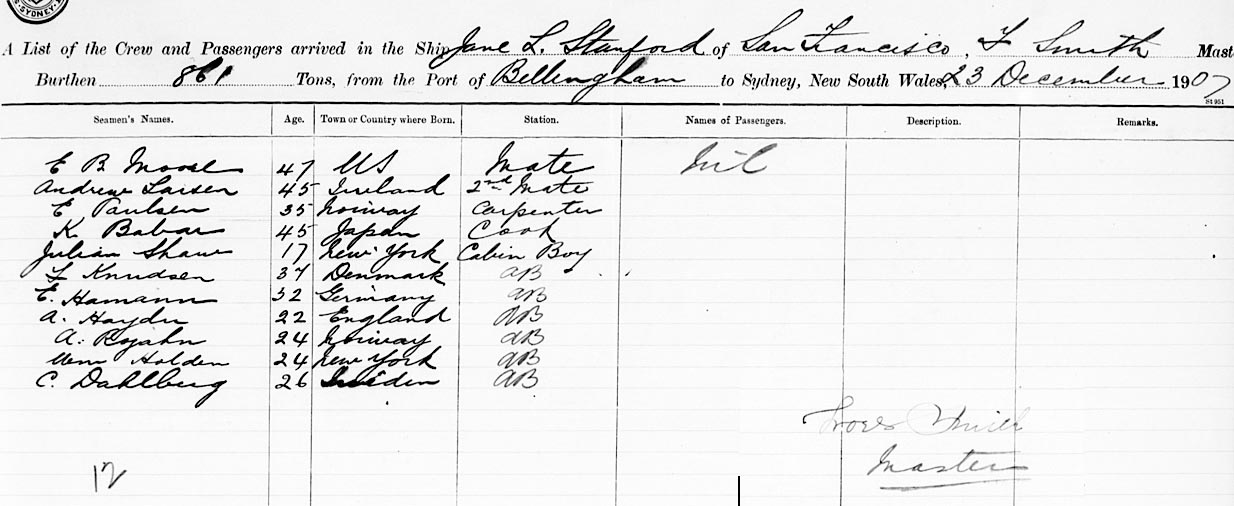 SYDNEY
A List of the Crew and Passengers arrived in the Ship Jane L. Stanford of San Francisco, F Smith Mast
Burthen 861 Tons, from the Port of Bellingham to Sydney, New South Wales, 23 December 1907
St 951
Seamen's Names. Age. Town or Country where Born. Station. Names of Passengers. Description. Remarks.
E B Moore 47 US Mate Nil
Andrew Larsen 45 Ireland 2nd Mate
E Paulsen 35 Norway Carpenter
K Babar 45 Japan Cook
Julian Shaw 17 New York Cabin Boy
F Knudsen 37 Denmark AB
E. Hamann 32 Germany AB
A. Haydn 22 England AB
A. Rojahn 24 Norway AB
Holden 24 New York AB
C. Dahlberg 26 Sweden AB
Master
12